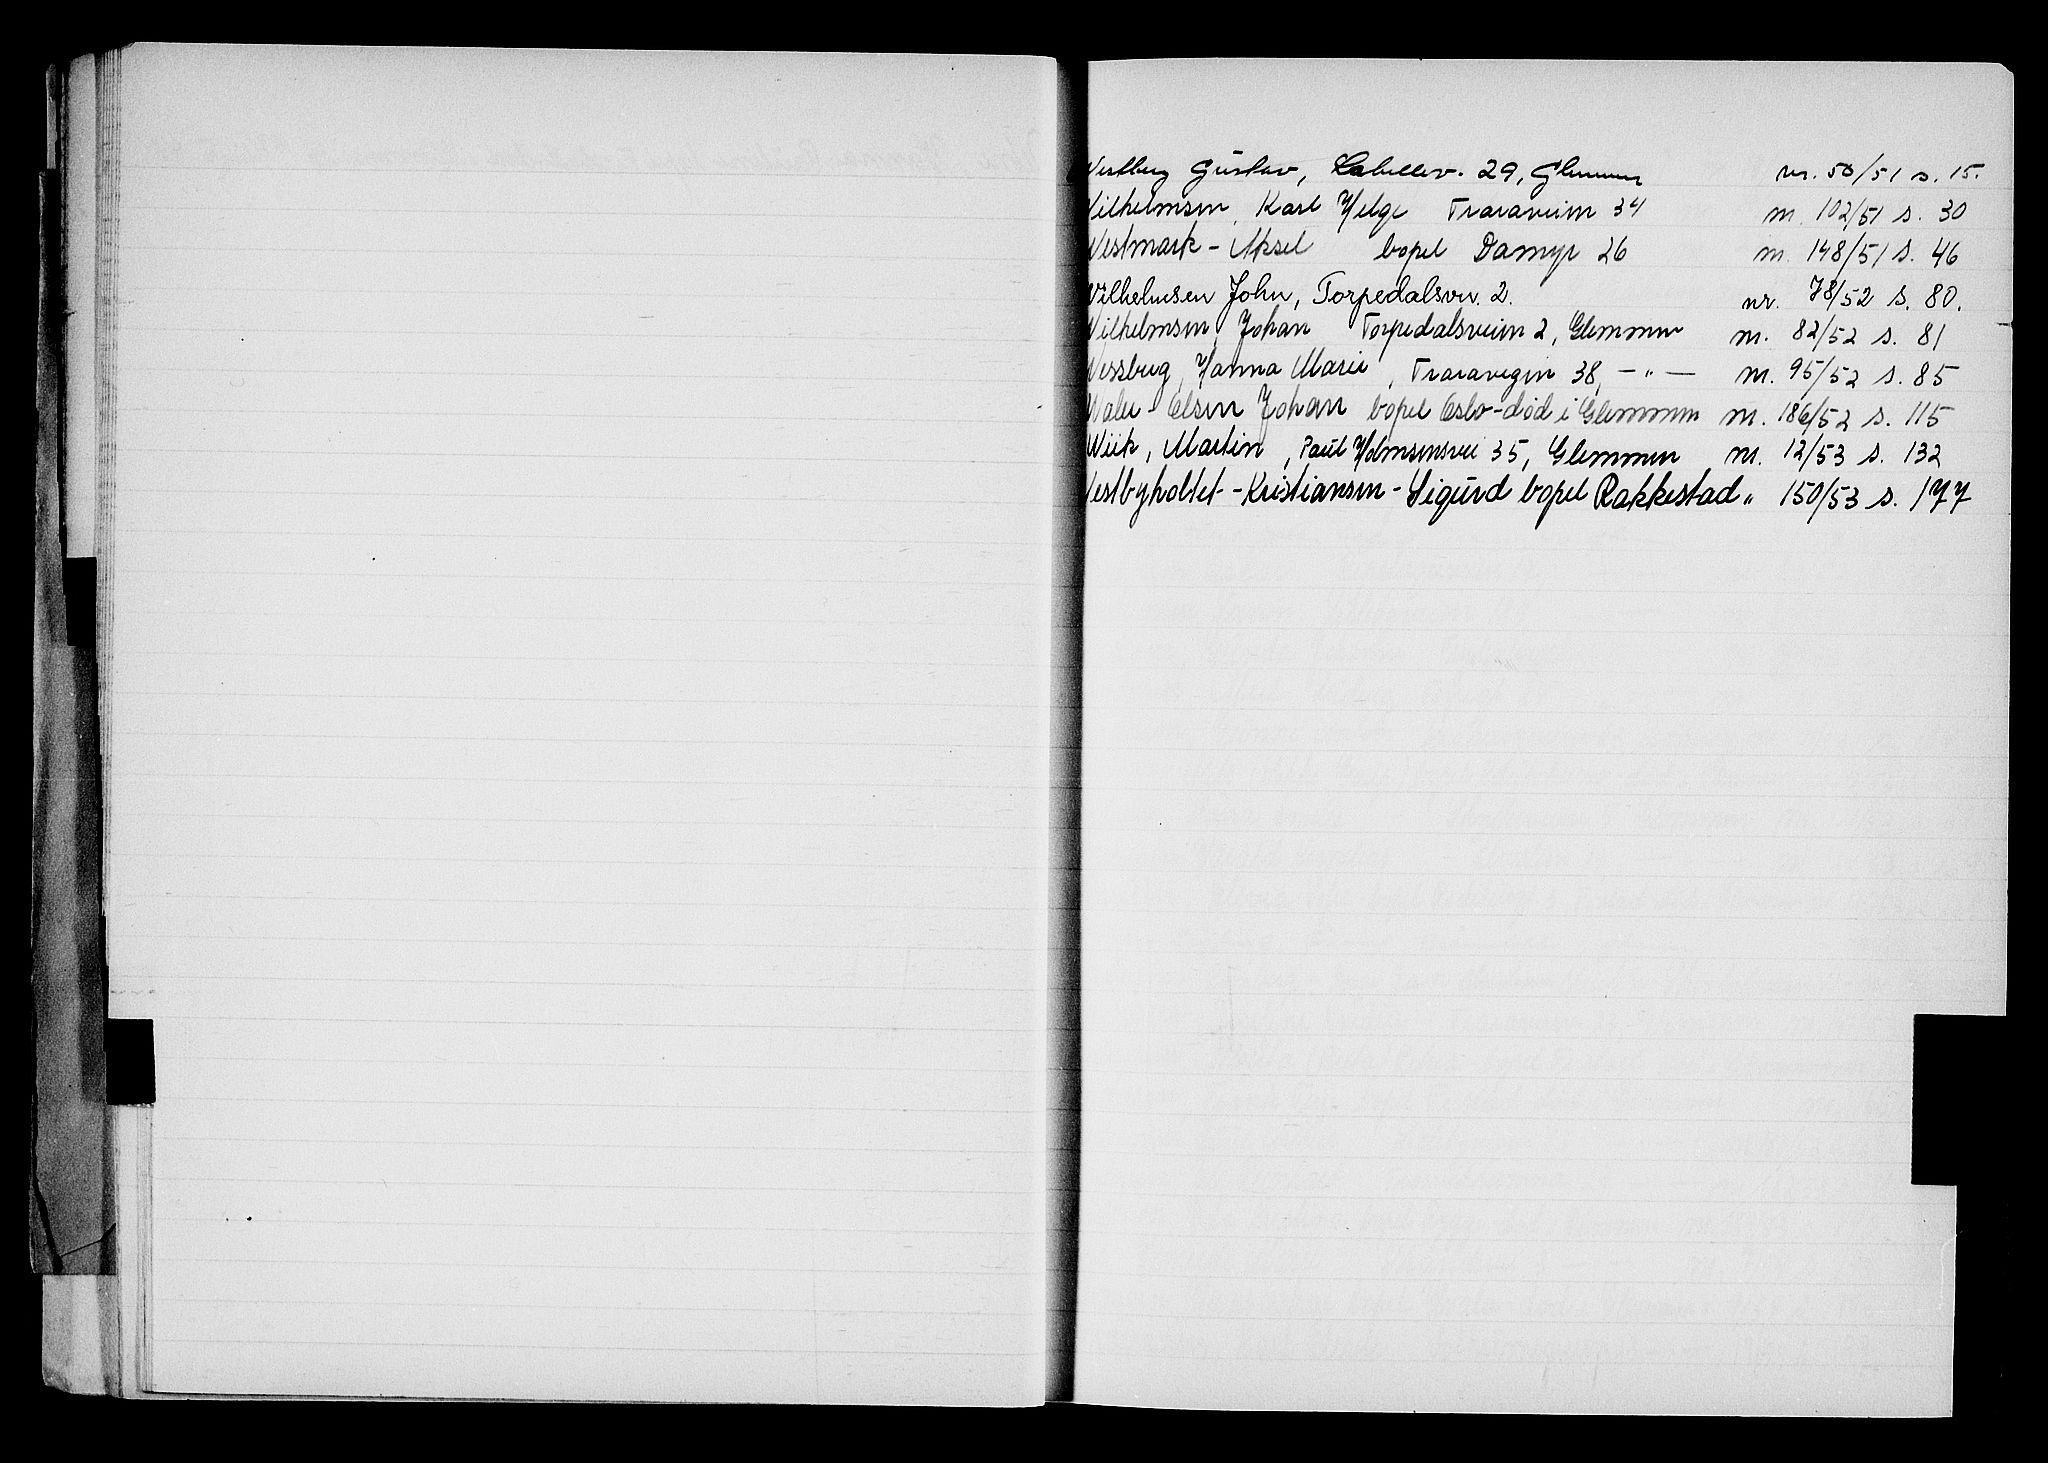 Westberg Gustav, Labellev. 29, Glemmen nr. 50/51 s. 15.
Wilhelmsen, Karl Helge Traraveien 34 nr. 102/51 s. 30
Westmark - Aksel bopel Damyr 26 nr. 148/51 s. 46
Wilhelmsen John, Torpedalsvn. 2. nr. 78/52 s. 80.
Wilhelmsen, Johan Torpedalsveien 2, Glemmen nr. 82/52 s. 81
Wessberg, Hanna Marie, Traravegen 38, — " — nr. 95/52 s. 85
Waler - Olsen Johan bopel Oslo - død i Glemmen nr. 186/52 s. 115
Wiik, Martin, Paul Holmsensvei 35, Glemmen nr. 12/53 s. 132
Vestbyholtet - Kristiansen - Sigurd bopel Rakkestad " 150/53 s. 177